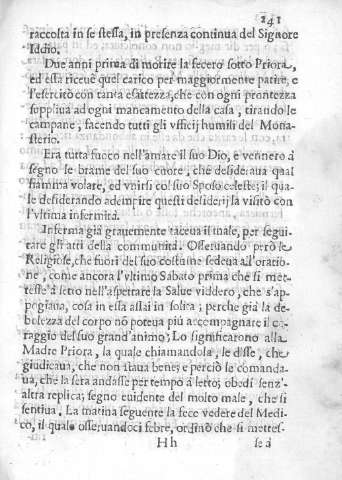 241
raccolta in se stessa, in presenza continua del Signore
Iddio.
Due anni prima di morire la fecero sotto Priora,
ed essa riceuè quel carico per maggiormente patire, e
l'esercitò con tanta esattezza, che con ogni prontezza
suppliua ad ogni mancamento della casa, tirando le
campane, facendo tutti gli vfficij humili del Mona-
sterio.
Era tutta fuoco nell'amare il suo Dio, e vennero à
segno le brame del suo cuore, che desideraua qual
fiamma volare, ed vnirsi col suo Sposo celeste; il qua-
le desiderando adempire questi desiderij la visitò con
l'vltima infermità.
Inferma già grauemente taceua il male, per segui-
tare gli atti della communità. Osseruando però le
Religiose, che fuori del suo costume sedeua all'oratio-
ne, come ancora l'vltimo Sabato prima che si met-
tesse à letto nell'aspettare la Salue viddero, che s'ap-
pogiaua, cosa in essa assai in solita; perche già la de-
bolezza del corpo nõ poteua più accompagnare il co-
raggio del suo grand'animo; Lo significarono alla
Madre Priora, la quale chiamandola, le disse, che
giudicaua, che non staua bene; e perciò le comanda-
ua, che la sera andasse per tempo à letto; obedì senz'
altra replica; segno euidente del molto male, che si
sentiua. La matina seguente la fece vedere del Medi-
co, il quale osseruandoci febre, ordinò che si mettes-
Hh se à